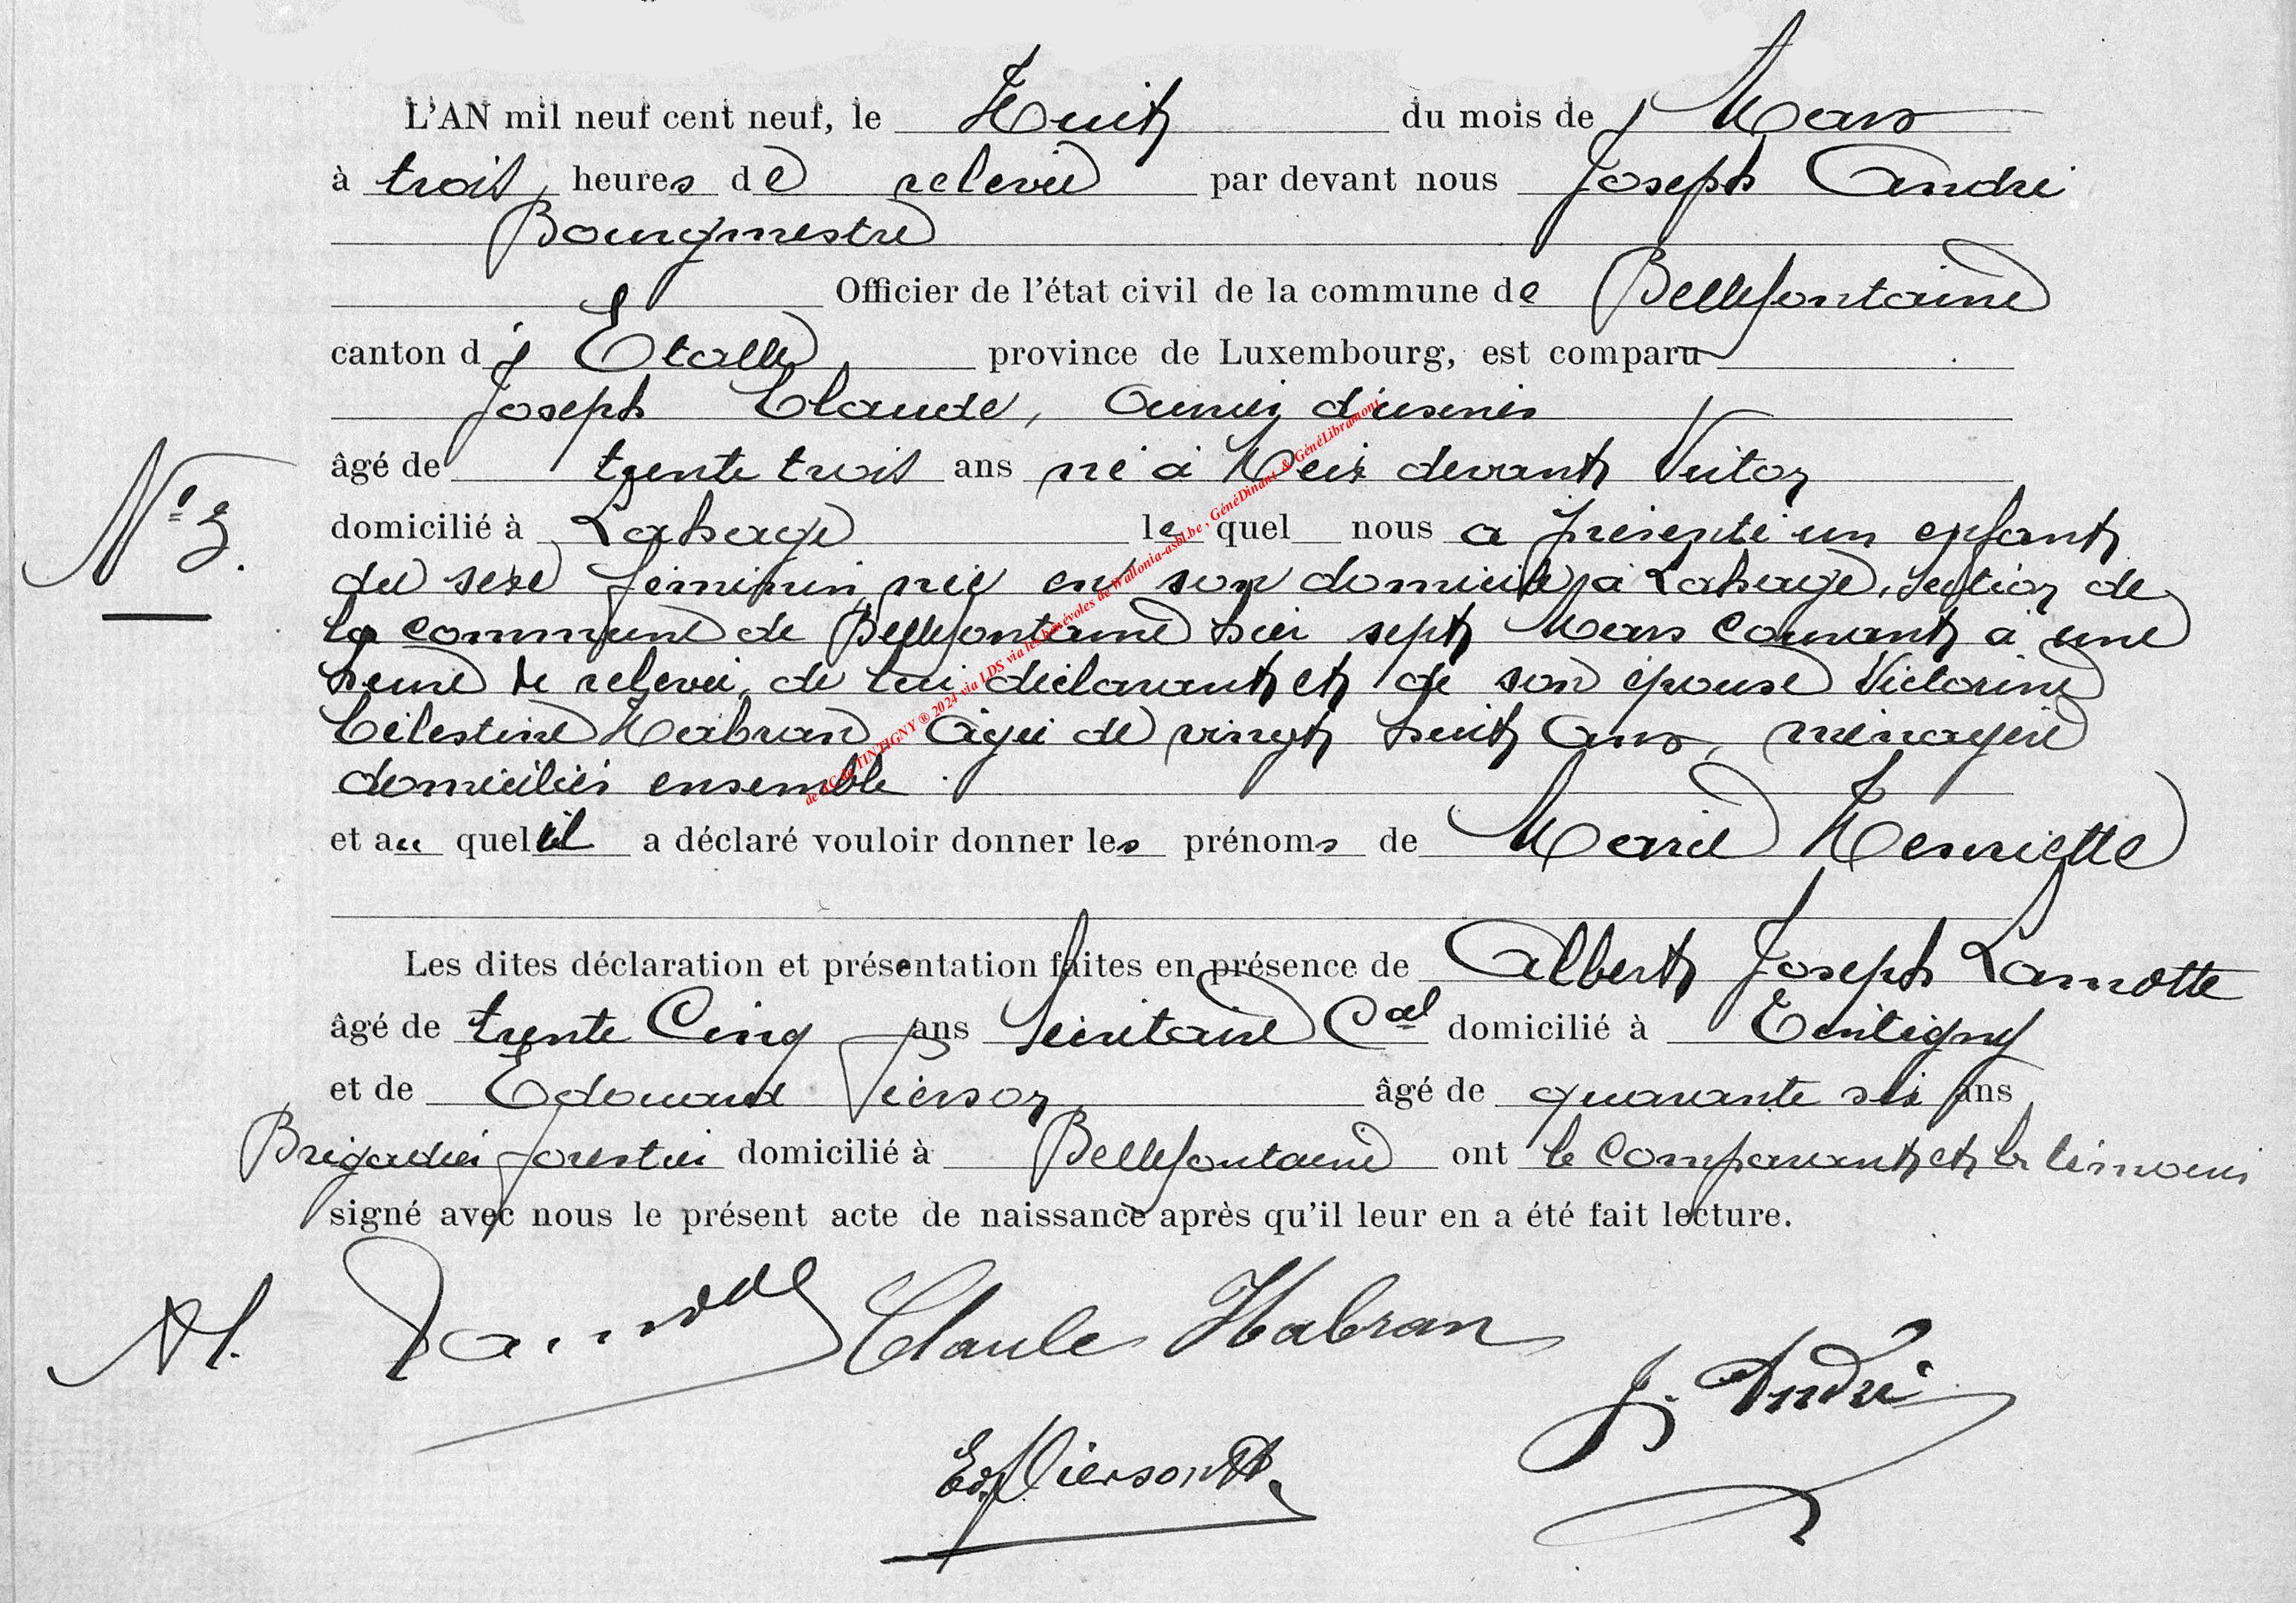 L'AN mil neuf cent neuf, le Huit du mois de Mars
à trois heures de relevée par devant nous Joseph André
Bourgmestre
Officier de l'état civil de la commune de Bellefontaine
canton d' Etalle province de Luxembourg, est comparu
Joseph Claude, Ouvrier d'usines
âgé de trente trois ans né à Meix devant Virton
N° 3.
domicilié à Lahage lequel nous a présenté un enfant
du sexe féminin, née en son domicile à Lahage, section de
la commune de Bellefontaine hier sept Mars courant à une
heure de relevée, de lui déclarant et de son épouse Victorine
Célestine Habran, âgée de vingt huit ans, ménagère
domiciliés ensemble
et auquel il a déclaré vouloir donner les prénoms de Marie Henriette
Les dites déclaration et présentation faites en présence de Albert Joseph Lamotte
âgé de trente Cinq ans Secrétaire Cal domicilié à Tintigny
et de Edouard Pierson âgé de quarante six ans
Brigadier forestier domicilié à Bellefontaine ont le comparant et les témoins
signé avec nous le présent acte de naissance après qu'il leur en a été fait lecture.
Claude Habran
J. André
Ed. Pierson
de AC de TINTIGNY ® 2024 via LDS via les bénévoles de Wallonia-asbl.be, GénéDinant & GénéLibramont